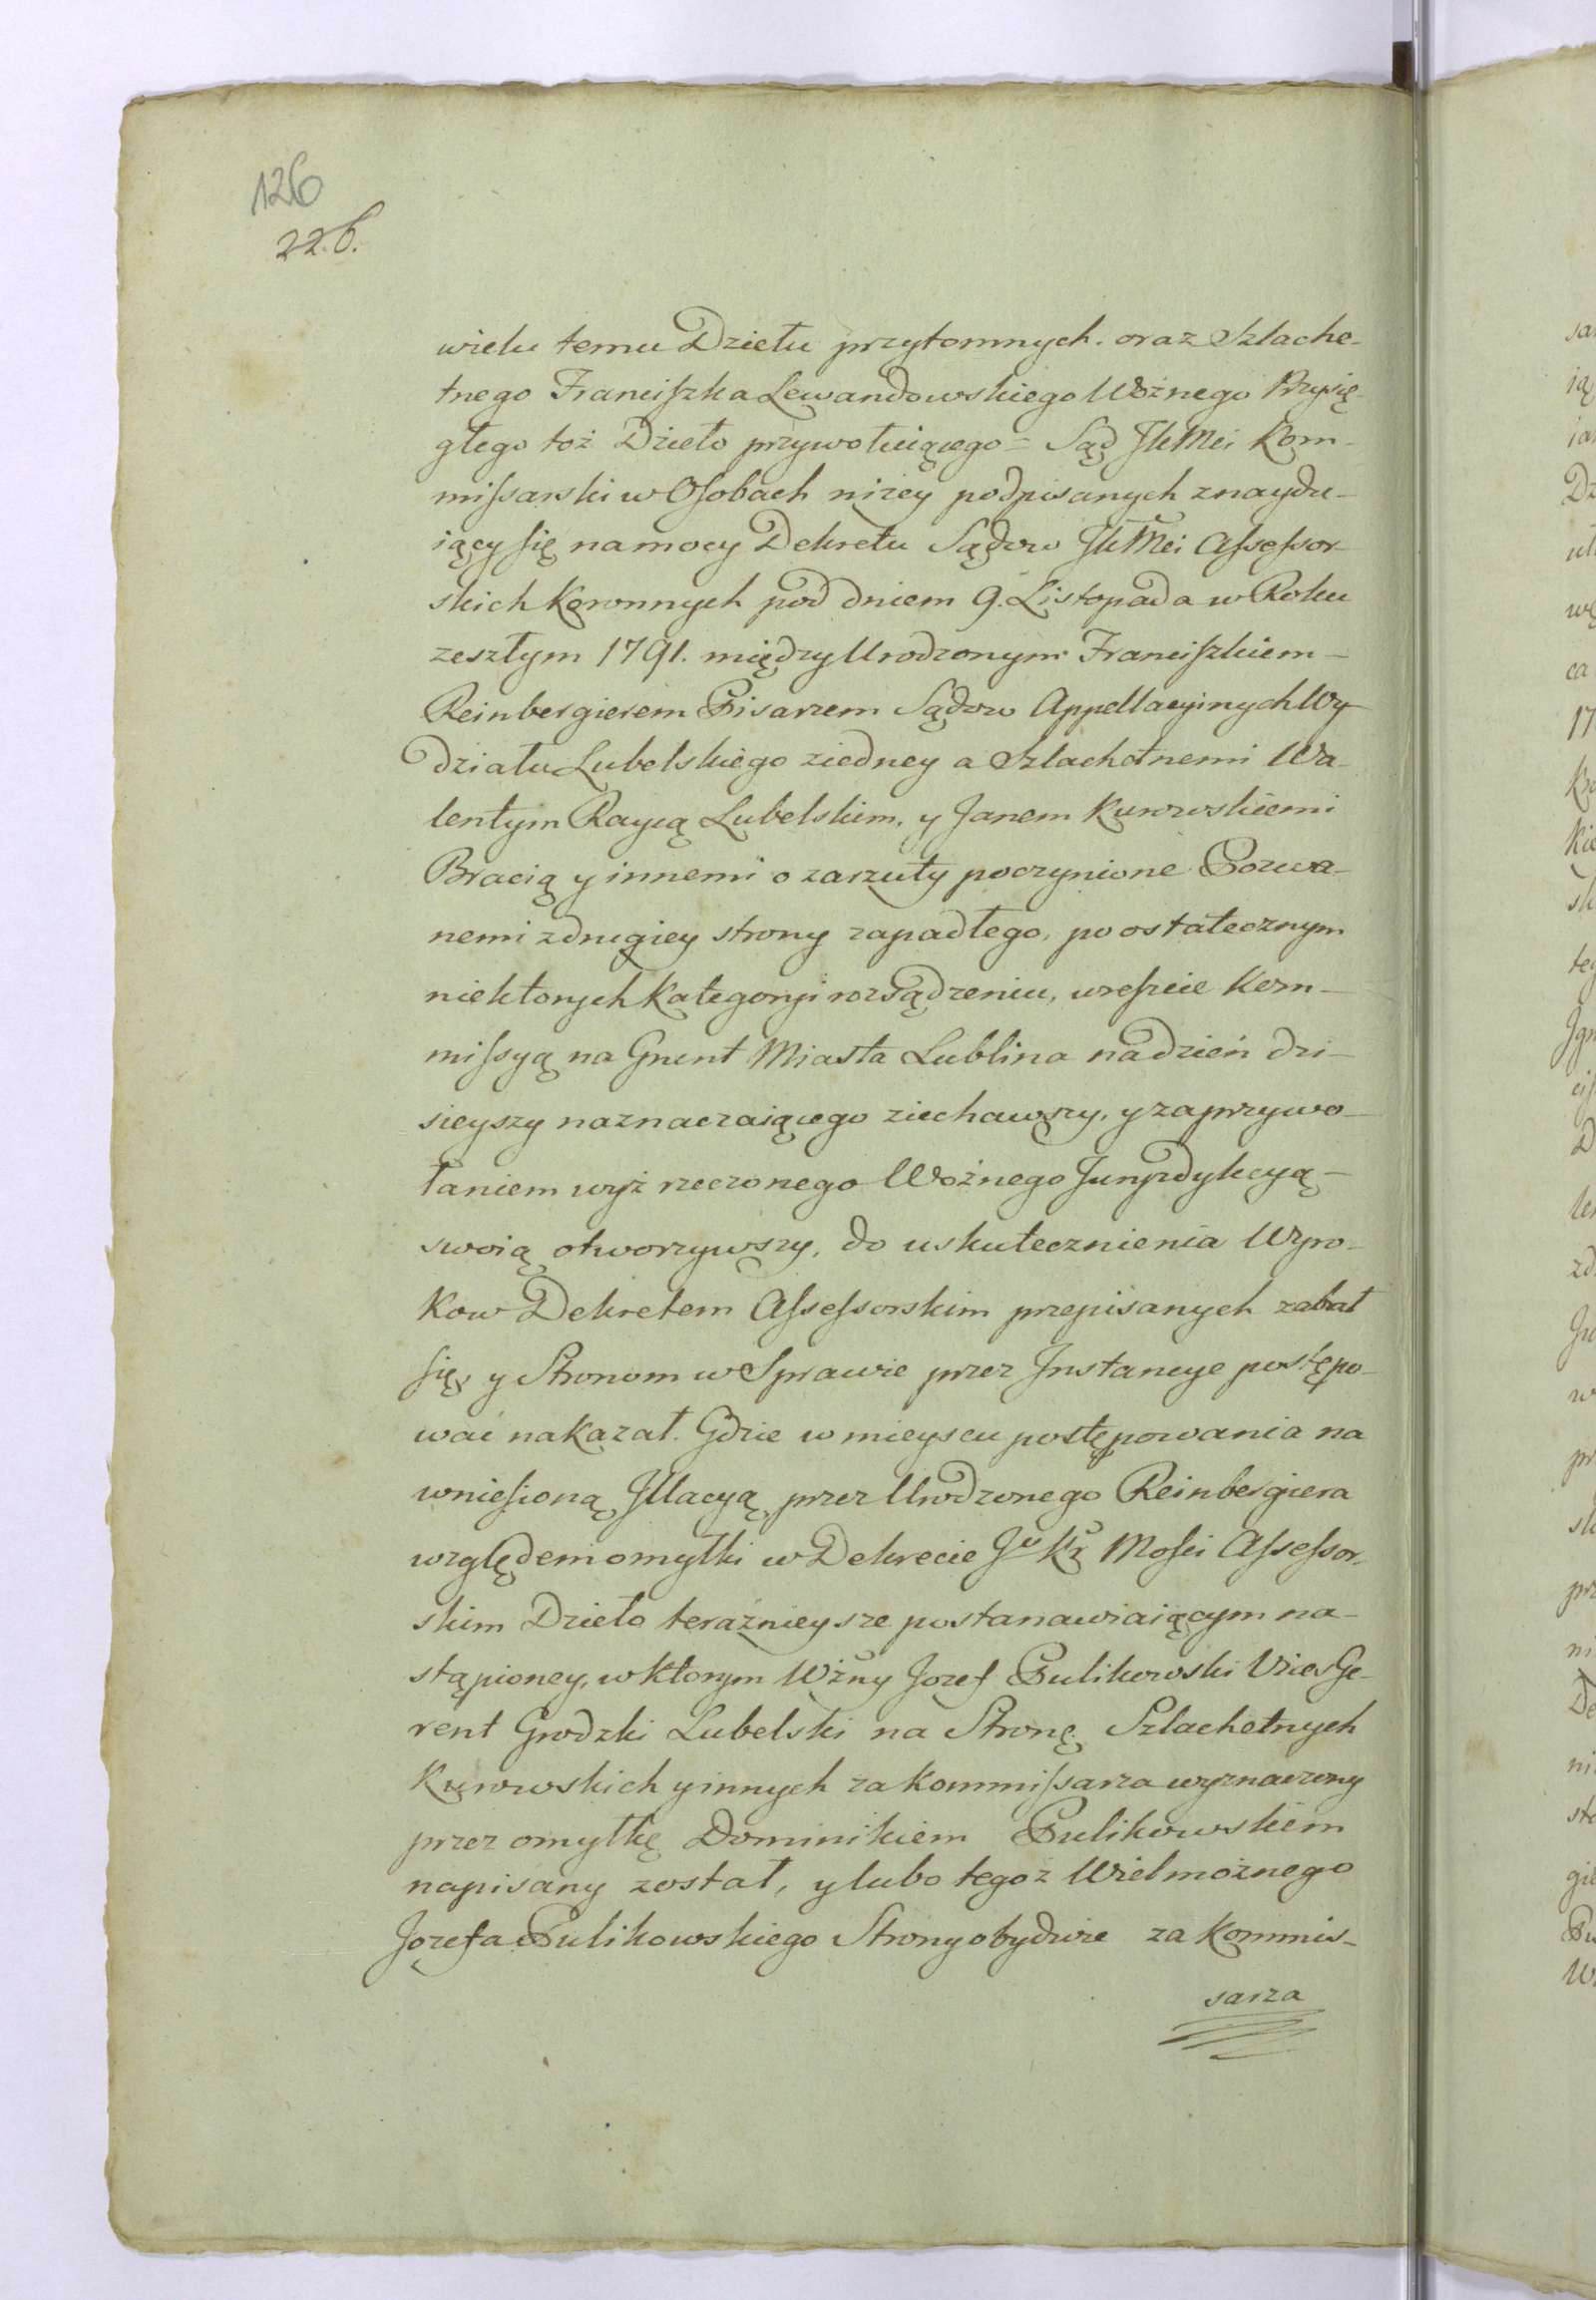 126
22.6.
wielu temu Dziełu przytomnych. oraz Szlache-
tnego Franciszka Lewandowskiego Woźnego Przysię-
głego toż Dzieło przywołuiącego = Sąd JKMci Kom-
missarski w Osobach niżey podpisanych znaydu-
iący się na mocy Dekretu Sądow JKMci Assessor-
skich Koronnych pod dniem 9. Listopada w Roku
zeszłym 1791. między Urodzonym Franciszkiem
Reinbergierem Pisarzem Sądow Appellacyinych Wy
działu Lubelskiego ziedney a Szlachetnemi Wa-
lentym Raycą Lubelskim, y Janem Kurowskiemi
Bracią y innemi o zarzuty poczynione Pozwa-
nemi zdrugiey strony zapadłego, po ostatecznym
niektorych Kategoryi rozsądzeniu, wreszcie Kom-
missyą na Grunt Miasta Lublina na dzień dzi-
sieyszy naznaczaiącego ziechawszy, y zaprzywo-
łaniem wyż rzeczonego Woźnego Juryzdykcyą
swoią otworzywszy, do uskutecznienia Wyro-
kow Dekretem Assessorskim przepisanych zabrał
się, y Stronom w Sprawie przez Instancye postępo-
wać nakazał. Gdzie w mieyscu postępowania na
wniesioną Illacyą, przez Urodzonego Reinbergiera
względem omyłki w Dekrecie Jo Kr Mości Assessor-
skim Dzieło teraźnieysze postanawiaiącym na-
stąpioney, w ktorym Wżny Jozef Pulikowski Vices Ge-
rent Grodzki Lubelski na Stronę Szlachetnych
Kurowskich y innych za Kommissarza wyznaczony
przez omyłkę Dominikiem Pulikowskiem
napisany został, y lubo tegoz Wielmożnego
Jozefa Pulikowskiego Strony obydwie za Kommis-
sarza